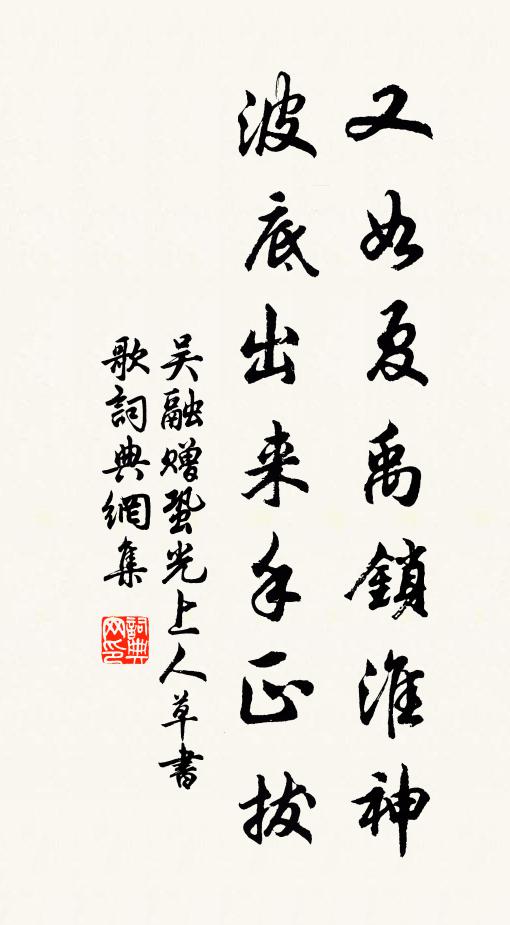 又如夏禹鎖淮神
波底出來手正拔
吴融赠蛩光上人草書
歌詞典網集
詞典網印